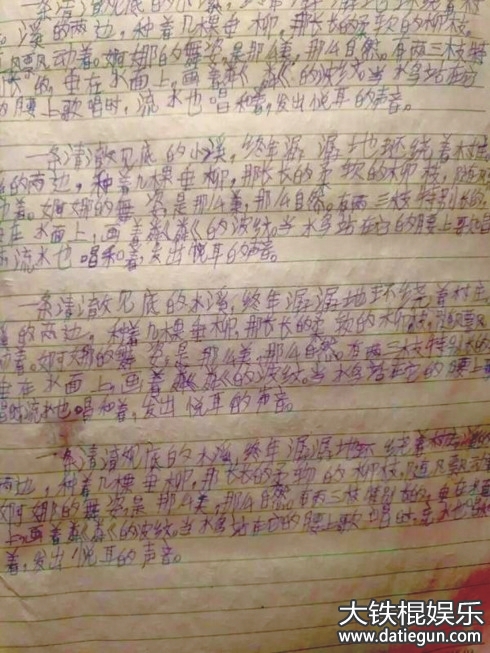 一条清澈见底的小溪,终年潺潺地环绕着村
溪的两边,种着几棵垂柳,那长长的柔软的柳枝,
随风飘动着。婀娜的舞姿,是那么美,那么自然。有两三枝特
长的,垂在水面上,画着粼粼的波纹。当水鸟站在它
的腰上歌唱时,流水也唱和着,发出悦耳的声音。
一条清澈见底的小溪,终年潺潺地环绕着村庄。
的两边,种着几棵垂柳,那长长的柔软的柳枝,随风
动着。婀娜的舞姿,是那么美,那么自然。有两三枝特别长的,
在水面上,画着粼粼的波纹。当水鸟站在它的腰上歌唱
流水也唱和着,发出悦耳的声音。
一条清澈见底的小溪,终年潺潺地环绕着村庄。
的两边,种着几棵垂柳,那长长的柔软的柳枝,随风飘
动着。婀娜的舞姿,是那么美,那么自然。有两三枝特别长的
垂在水面上,画着粼粼的波纹。当水鸟站在它的腰上歌
唱时,流水也唱和着,发出悦耳的声音。
一条清澈见底的小溪,终年潺潺地环绕着村庄。溪的
两边,种着几棵垂柳,那长长的柔软的柳枝,随风飘动着
婀娜的舞姿,是那么美,那么自然,有两三枝特别长的,垂在水面
上,画着粼粼的波纹。当水鸟站在它的腰上歌唱时,流水也唱和
着,发出悦耳的声音。
大铁棍娱乐
www.datiegun.com